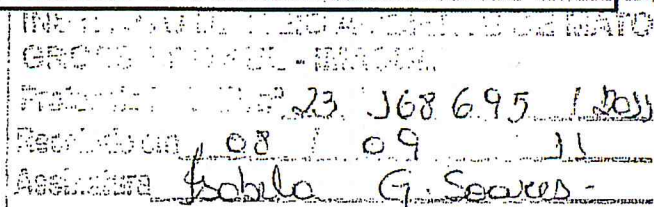 DE MATO
GROSSO DO SUL - IMASUL
Protocolo nº 23 168 695 / 2011
Recebido em 08 / 09 11
Assinatura Isabela G. Soares -